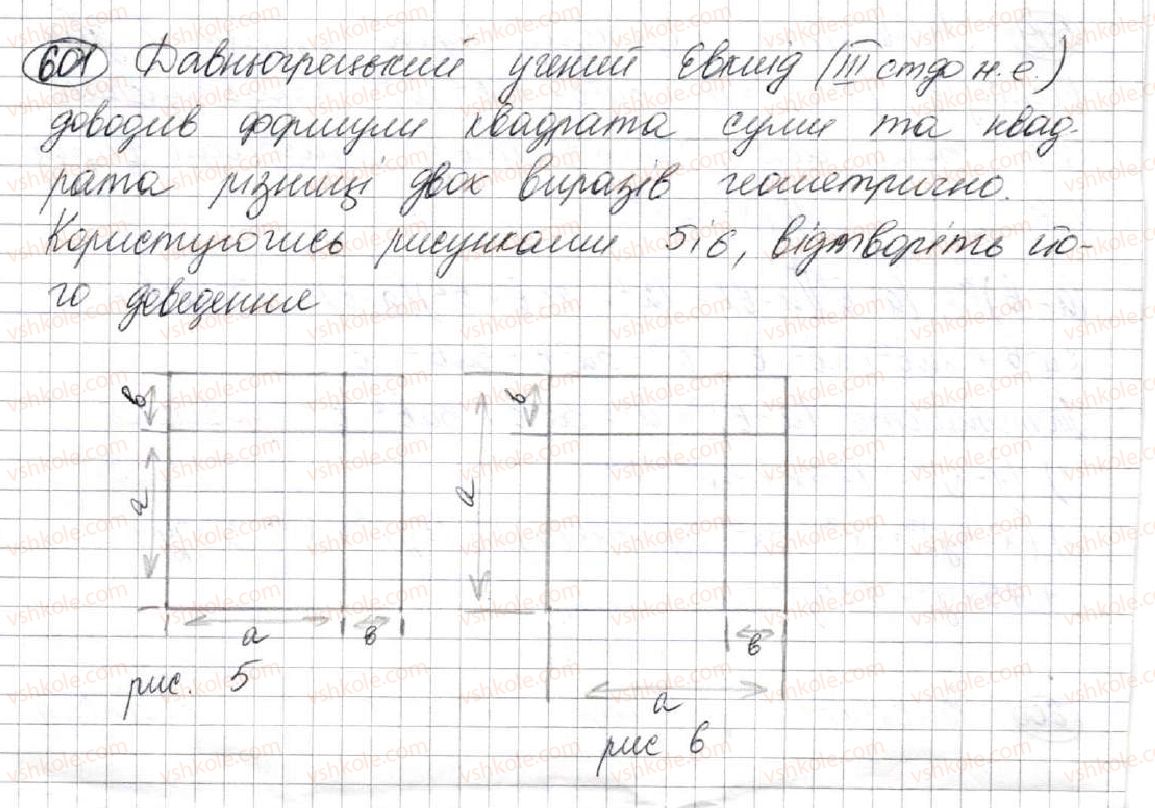 601 Давньогрецький учений Евклід (III ст до н.е.)
доводив формули квадрата суми та квад-
рата різниці двох виразів геометрично.
Користуючись рисунками 5 і 6, відтворіть йо-
го доведення
в
а
а
в
рис. 5
в
а
в
а
рис 6
vshkole.com